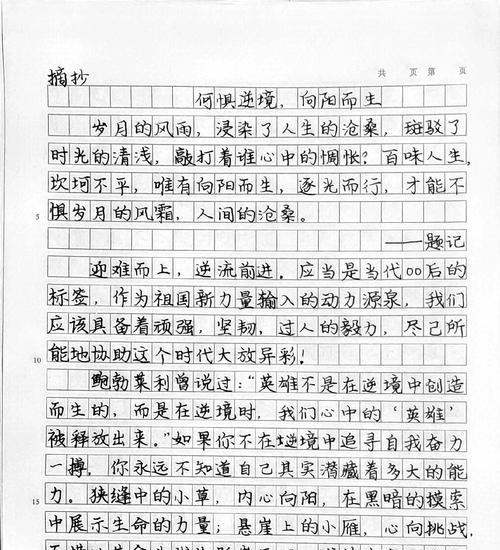 共 页 第 页
摘抄
何惧逆境，向阳而生
岁月的风雨，浸染了人生的沧桑，斑驳了
时光的清浅，敲打着谁心中的惆怅？百味人生，
坎坷不平，唯有向阳而生，逐光而行，才能不
5
惧岁月的风霜，人间的沧桑。
——题记
迎难而上，逆流前进。应当是当代00后的
标签，作为祖国新力量输入的动力源泉，我们
应该具备着顽强，坚韧，过人的毅力，尽己所
10
能地协助这个时代大放异彩！
鲍勃莱利曾说过：“英雄不是在逆境中创造
而生的，而是在逆境时，我们心中的‘英雄’
被释放出来。”如果你不在逆境中追寻自我奋力
一搏。你永远不知道自己其实潜藏着多大的能
15
力。狭缝中的小草，内心向阳，在黑暗的摸索
中展示生命的力量；悬崖上的小雁，心向挑战，